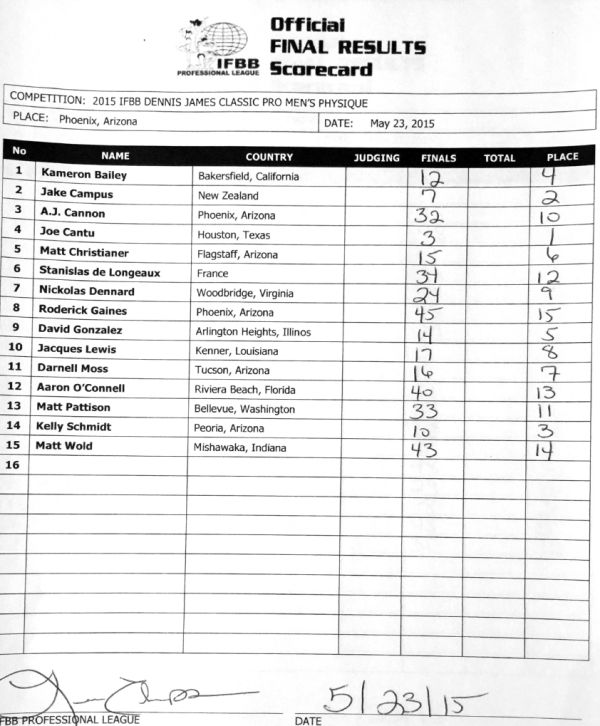 Official
FINAL RESULTS
Scorecard
IFBB
PROFESSIONAL LEAGUE
COMPETITION: 2015 IFBB DENNIS JAMES CLASSIC PRO MEN'S PHYSIQUE
PLACE: Phoenix, Arizona DATE: May 23, 2015
No NAME COUNTRY JUDGING FINALS TOTAL PLACE
1 Kameron Bailey Bakersfield, California 12 4
2 Jake Campus New Zealand 7 2
3 A.J. Cannon Phoenix, Arizona 32 10
4 Joe Cantu Houston, Texas 3 1
5 Matt Christianer Flagstaff, Arizona 15 6
6 Stanislas de Longeaux France 34 12
7 Nickolas Dennard Woodbridge, Virginia 24 9
8 Roderick Gaines Phoenix, Arizona 45 15
9 David Gonzalez Arlington Heights, Illinos 14 5
10 Jacques Lewis Kenner, Louisiana 17 8
11 Darnell Moss Tucson, Arizona 16 7
12 Aaron O'Connell Riviera Beach, Florida 40 13
13 Matt Pattison Bellevue, Washington 33 11
14 Kelly Schmidt Peoria, Arizona 10 3
15 Matt Wold Mishawaka, Indiana 43 14
16
5/23/15
FBB PROFESSIONAL LEAGUE DATE